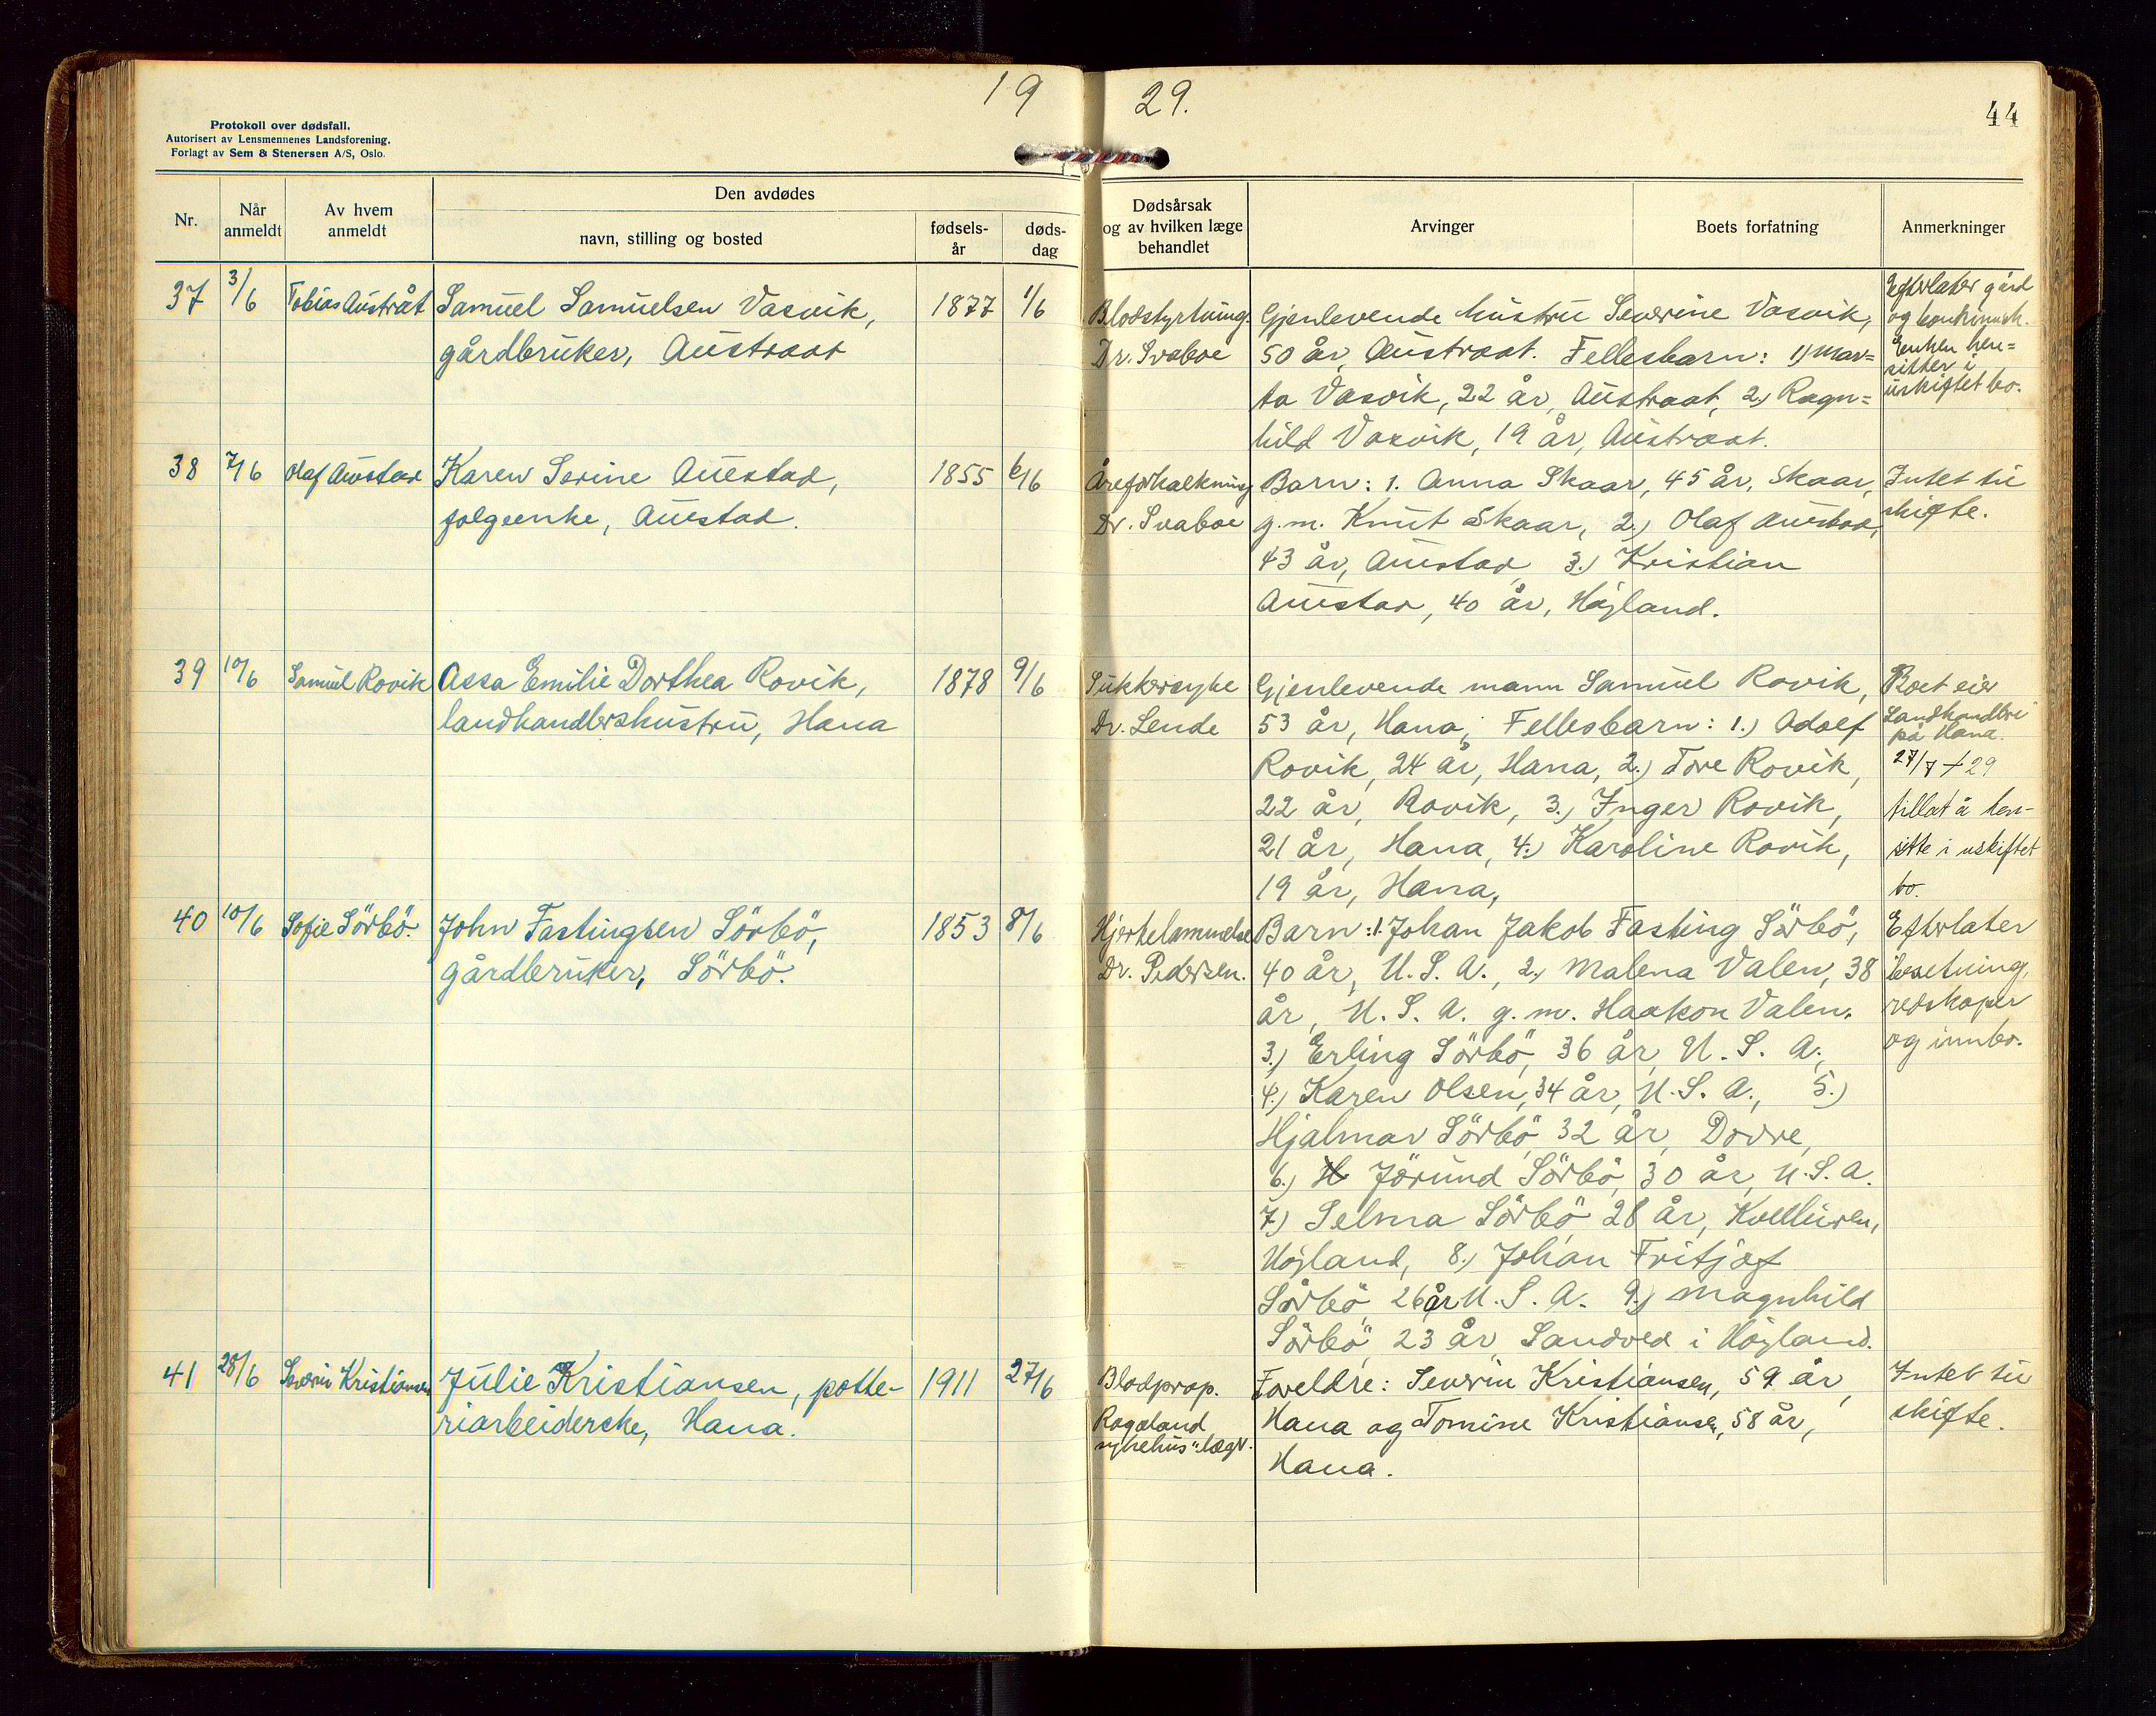 19 29.
44
Protokoll over dødsfall.
Autorisert av Lensmennenes Landsforening.
Forlagt av Sem & Stenersen A/S, Oslo.
Nr.
Når anmeldt
Av hvem anmeldt
Den avdødes
navn, stilling og bosted
fødsels-år
døds-dag
Dødsårsak og av hvilken læge behandlet
Arvinger
Boets forfatning
Anmerkninger
37 3/6 Tobias Austråt
Samuel Samuelsen Vasvik,
gårdbruker, Austraat
1877 1/6
Blodstyrtning.
Dr. Svaboe
Gjenlevende hustru Severine Vasvik,
50 år, Austraat. Fellesbarn: 1) Mar=
ta Vasvik, 22 år, Austraat, 2.) Ragn=
hild Vasvik, 19 år, Austraat.
Efterlater gård
og
Enken hen=
sitter i
uskiftet bo.
38 7/6 Olaf Auestad
Karen Serine Auestad,
folgeenke, Auestad.
1855 6/6
Åreforkalkning
Dr. Svaboe
Barn: 1. Anna Skaar, 45 år, Skaar,
g.m. Knut Skaar, 2.) Olaf Auestad,
43 år, Auestad, 3.) Kristian
Auestad, 40 år, Højland.
Intet til
skifte.
39 10/6 Samuel Rovik
Assa Emilie Dorthea Rovik,
landhandlershustru, Hana
1878 9/6
Sukkersyke
Dr. Lende
Gjenlevende mann Samuel Rovik,
53 år, Hana, Fellesbarn: 1.) Adolf
Rovik, 24 år, Hana, 2.) Tore Rovik,
22 år, Rovik, 3.) Inger Rovik,
21 år, Hana, 4.) Karoline Rovik,
19 år, Hana,
Boet eier
Landhandleri
på Hana.
27/7 29
tillat å hen-
sitte i uskiftet
bo.
40 10/6 Sofie Sörbö.
John Fastingsen Sörbö,
gårdbruker, Sörbö.
1853 8/6
Hjertelammelse
Dr. Pedersen.
Barn: 1. Johan Jakob Fasting Sörbö,
40 år, U.S.A., 2.) Malena Valen, 38
år, U.S.A. g.m. Haakon Valen.
3.) Erling Sörbö, 36 år, U.S.A.,
4.) Karen Olsen, 34 år, U.S.A., 5.)
Hjalmar Sörbö, 32 år, Dovre,
6.) H Jörund Sörbö, 30 år, U.S.A.
7.) Selma Sörbö 28 år, Kvelluren,
Højland, 8.) Johan Fritjof
Sörbö, 26 år U.S.A. 9.) Magnhild
Sörbö, 23 år, Sandved i Høyland.
Efterlater
besetning,
redskaper
og innbo.
41 28/6 Severin Kristiansen
Julie Kristiansen, potte-
riarbeiderske, Hana.
1911 27/6
Blodprop.
Rogaland
sykehus' lægr.
Foreldre: Severin Kristiansen, 59 år,
Hana og Tomine Kristiansen, 58 år,
Hana.
Intet til
skifte.